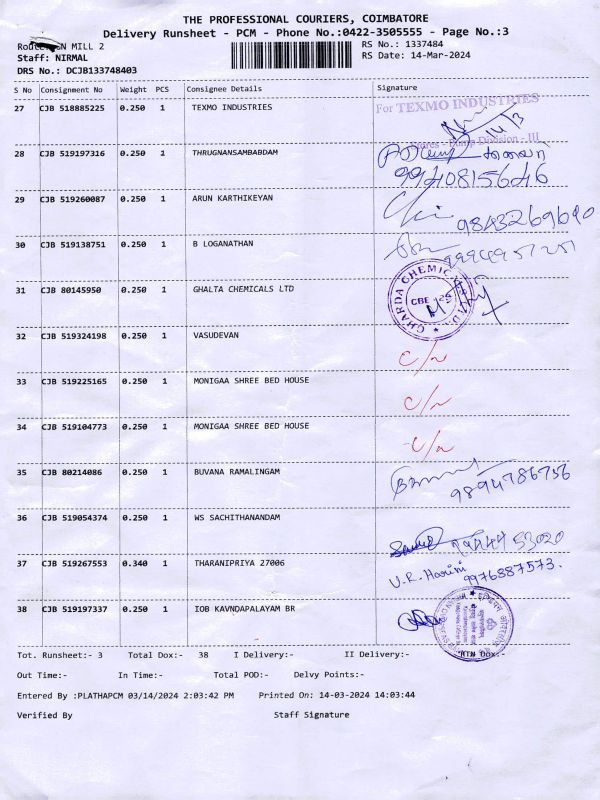 THE PROFESSIONAL COURIERS, COIMBATORE
Delivery Runsheet - PCM - Phone No.:0422-3505555 - Page No.:3
GN MILL 2
RS No.: 1337484
Staff: NIRMAL
RS Date: 14-Mar-2024
DRS No.: DCJB133748403
S No Consignment No Weight PCS Consignee Details Signature
27 CJB 518885225 0.250 1 TEXMO INDUSTRIES For TEXMO INDUSTRIES
14/3
Division - III
28 CJB 519197316 0.250 1 THRUGNANSAMBABDAM
9940815646
29 CJB 519260087 0.250 1 ARUN KARTHIKEYAN
9843269690
30 CJB 519138751 0.250 1 B LOGANATHAN
31 CJB 80145950 0.250 1 GHALTA CHEMICALS LTD
GHARDA CHEMICALS LTD.
CBE
32 CJB 519324198 0.250 1 VASUDEVAN C/N
33 CJB 519225165 0.250 1 MONIGAA SHREE BED HOUSE C/N
34 CJB 519104773 0.250 1 MONIGAA SHREE BED HOUSE C/N
35 CJB 80214086 0.250 1 BUVANA RAMALINGAM
9894786756
36 CJB 519054374 0.250 1 WS SACHITHANANDAM
53020
37 CJB 519267553 0.340 1 THARANIPRIYA 27006
U.R. Harini 9976887573.
38 CJB 519197337 0.250 1 IOB KAVNDAPALAYAM BR
Tot. Runsheet:- 3 Total Dox:- 38 I Delivery:- II Delivery:- Dox:-
Out Time:- In Time:- Total POD:- Delvy Points:-
Entered By :PLATHAPCM 03/14/2024 2:03:42 PM Printed On: 14-03-2024 14:03:44
Verified By Staff Signature